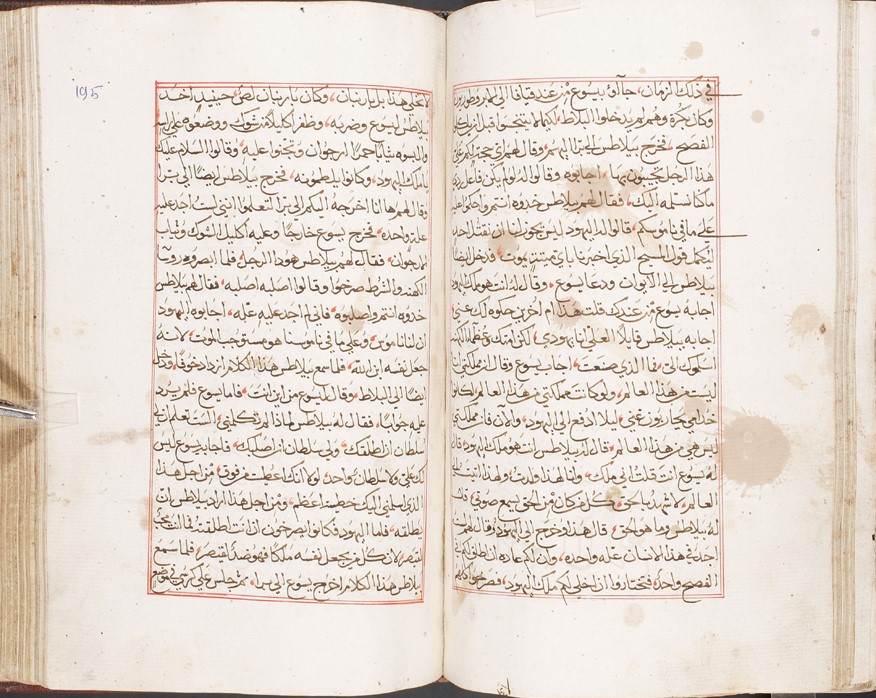 في ذلك الزمان جاآو بيسوع من عند قيافا الى
وكان بكره وهم لم يدخلوا البلاط لكيما لا يتنجسوا قبل ان ياكلوا
الفصح فخرج بيلاطس الى برا اليهم وقال لهم اي حجه لكم على
هذا الرجل اجابوه وقالوا له لو لم يكن فاعل
ما كنا نسلمه اليك فقال لهم بيلاطس خدوه انتم واحكموا عليه
على ما في ناموسكم قالوا له اليهود ليس يجوز لنا ان نقتل احد
ليكمل قول المسيح الذي اخبرنا باي ميته يموت فدخل ايضا
بيلاطس الى الايوان ودعا يسوع وقال له انت هو ملك اليهود
اجابه يسوع من عندك قلت هذا ام اخرين حكوه لك عني
اجابه بيلاطس قايلا لعلي انا يهودي لكن امتك وعظما الكهنه
اسلموك الي فما الذي صنعت اجاب يسوع وقال ان مملكتي
ليست من هذا العالم ولو كانت مملكتي من هذا العالم لكانوا
خدامي يحاربون عني ليلا ادفع الى اليهود والان فان مملكتي
ليس هي من هذا العالم قال له بيلاطس انت هو ملك اليهود قال
له يسوع انت قلت اني ملك وانا لهذا ولدت ولهذا اتيت الى
العالم لاشهد بالحق كل من كان من الحق يسمع صوتي قال
له بيلاطس وما هو الحق قال هذا وخرج الى اليهود وقال لهم لست
اجد في هذا الانسان عله واحده وان لكم عاده ان اطلق لكم في
الفصح واحد فتختاروا ان اخلي لكم ملك اليهود فصرخوا كلهم
195
لا تخلي هذا بل باربان وكان باربان لص حينيد اخد
بيلاطس ليسوع وضربه وظفر اكليلا من شوك ووضعوه على راسه
والبسوه ثيابا حمرا ارجوان وقالوا السلام عليك
يا ملك اليهود وكانوا يلطمونه فخرج بيلاطس ايضا الى برا
وقال لهم ها انا اخرجه اليكم الى برا لتعلموا انني لست اجد عليه
عله واحده فخرج يسوع خارجا وعليه اكليل الشوك وثياب
الارجوان فقال لهم بيلاطس هودا الرجل فلما ابصروه روسا
الكهنه والشرط صرخوا وقالوا اصلبه اصلبه فقال لهم بيلاطس
خدوه انتم واصلبوه فاني لم اجد عليه عله اجابوه اليهود
ان لنا ناموس وعلى ما في ناموسنا هو مستوجب الموت لانه
جعل نفسه ابن الله فلما سمع بيلاطس هذا الكلام ازداد خوفا ودخل
ايضا الى البلاط وقال ليسوع من اين انت فاما يسوع فلم يرد
عليه جوابا فقال له بيلاطس لماذا لم تكلمني الست تعلم ان لي
سلطان ان اطلقك ولي سلطان ان اصلبك فاجابه يسوع ليس
لك علي ولا سلطان واحد لولا انك اعطيت من فوق من اجل هذا
الذي اسلمني اليك خطيته اعظم ومن اجل هذا اراد بيلاطس ان
يطلقه فاما اليهود فكانوا يصرخون ان انت اطلقته فما انت محب
لقيصر لان كل من يجعل نفسه ملكا فهو ضد لقيصر فلما سمع
بيلاطس هذا الكلام اخرج يسوع الى برا ثم جلس على كرسي في موضع